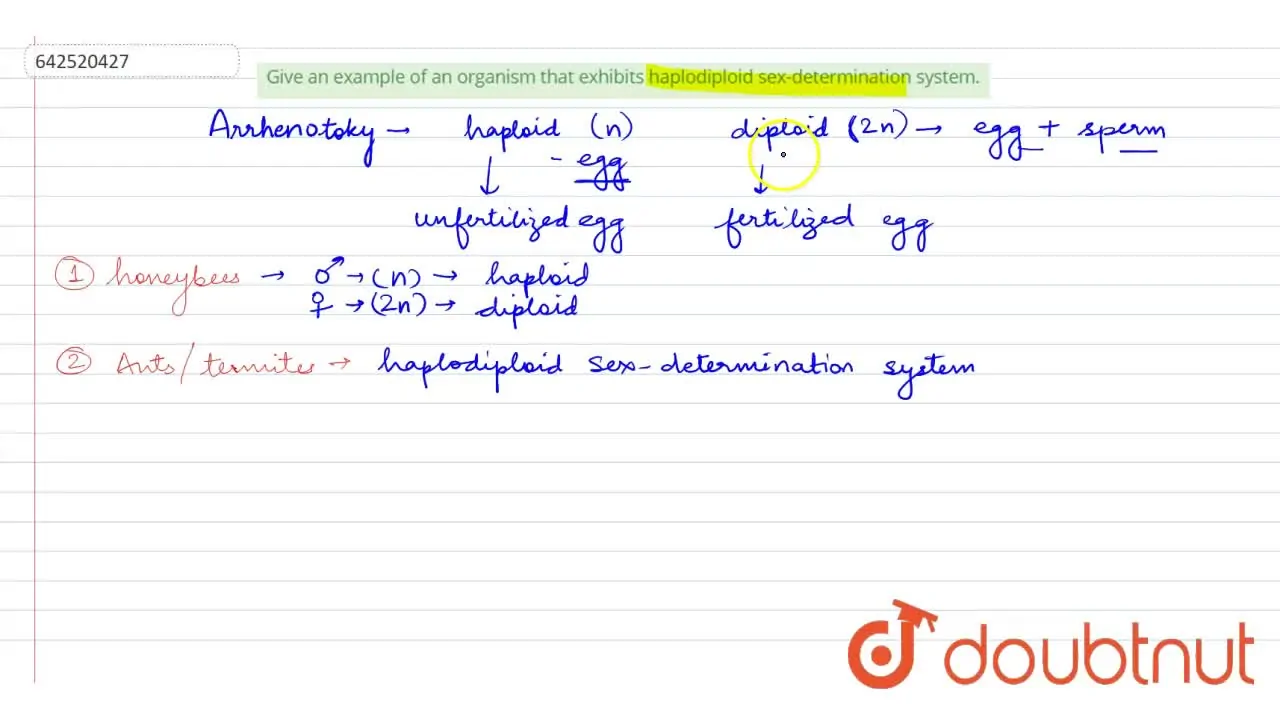 642520427
Give an example of an organism that exhibits haplodiploid sex-determination system.
Arrhenotoky → haploid (n) diploid (2n) → egg + sperm
- egg
↓ ↓
unfertilized egg fertilized egg
① honeybees → ♂ → (n) → haploid
♀ → (2n) → diploid
② Ants/termites → haplodiploid sex-determination system
doubtnut